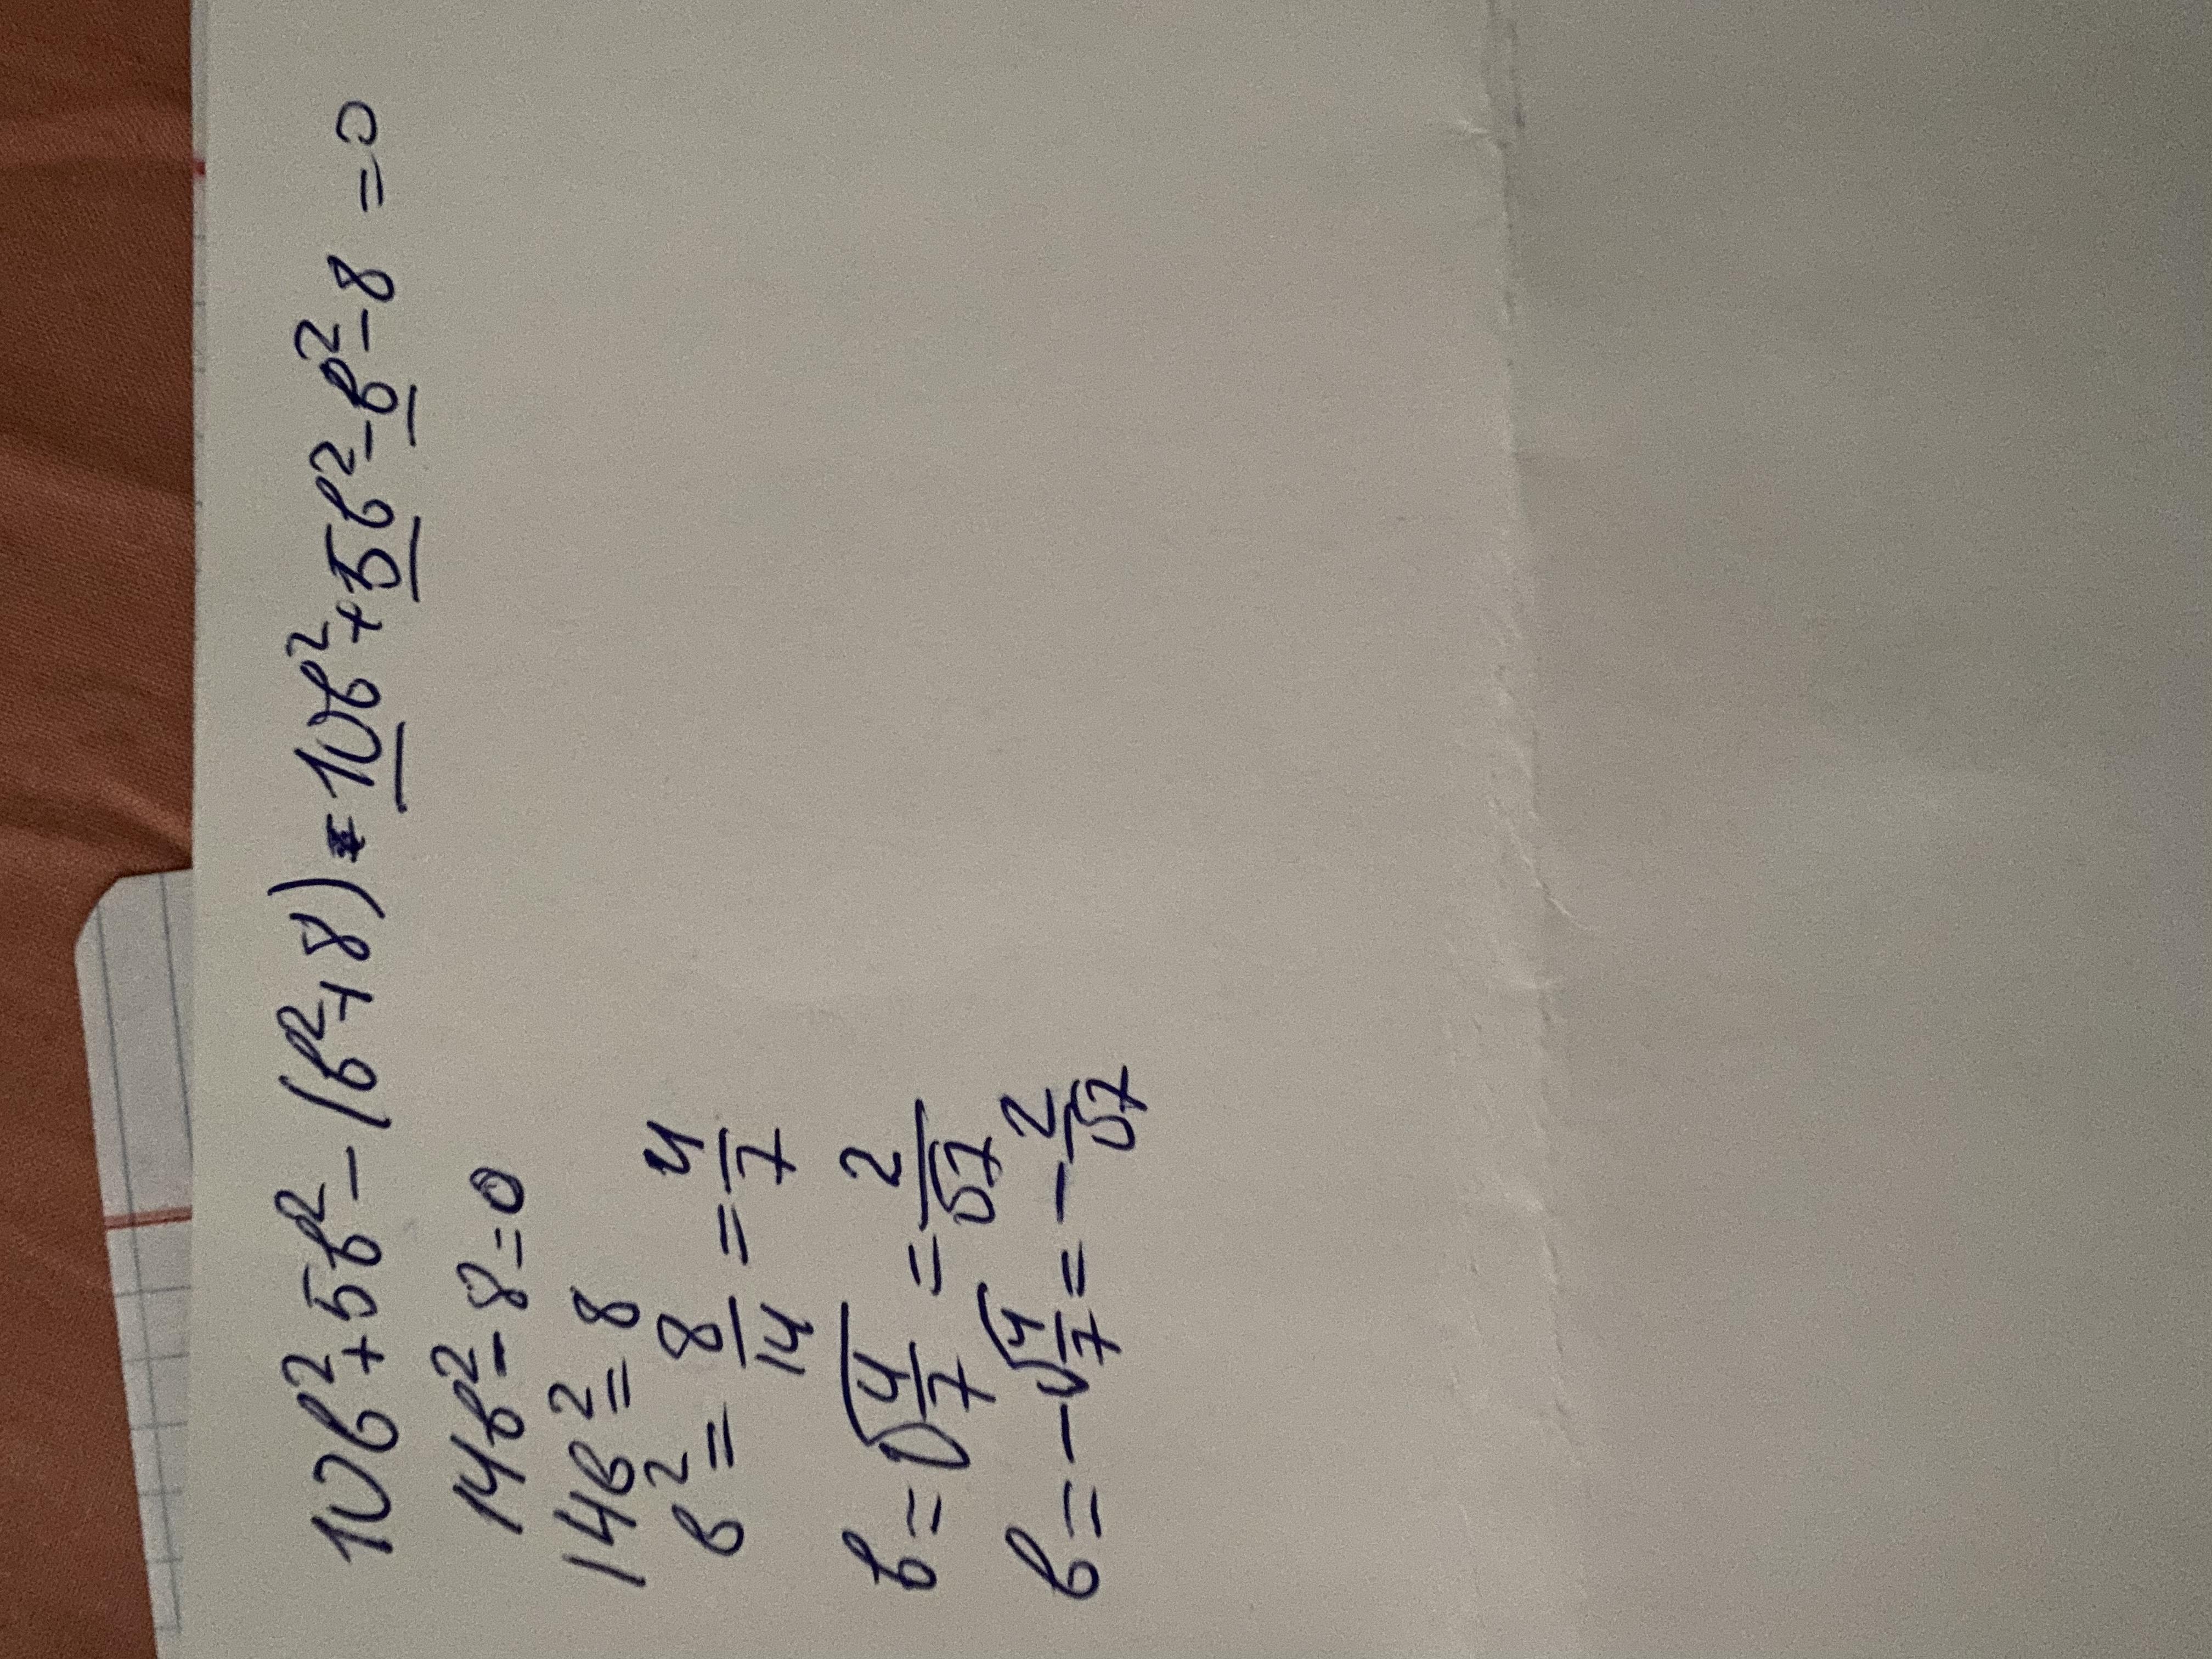 10b²+5b²-(b²+8)=10b²+5b²-b²-8=0
14b²-8=0
14b²=8
b²=8/14=4/7
b=√4/7=2/√7
b=-√4/7=-2/√7